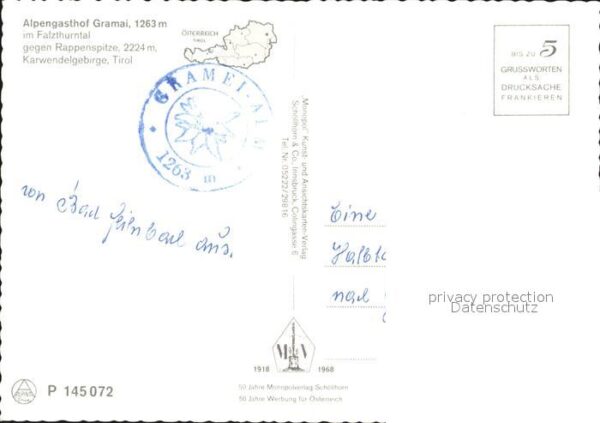 Alpengasthof Gramai, 1263 m
im Falzthurntal
gegen Rappenspitze, 2224 m,
Karwendelgebirge, Tirol
ÖSTERREICH
TIROL
BIS ZU 5
GRUSSWORTEN
ALS
DRUCKSACHE
FRANKIEREN
GRAMEI-ALM
1263 m
„Monopol" Kunst- und Ansichtskarten-Verlag
Schöllhorn & Co, Innsbruck,
Tel. Nr. 05222/29816
von Bad aus.
Eine
nach
privacy protection
Datenschutz
M V
1918 1968
50 Jahre Monopolverlag-Schöllhorn
50 Jahre Werbung für Österreich
P 145 072